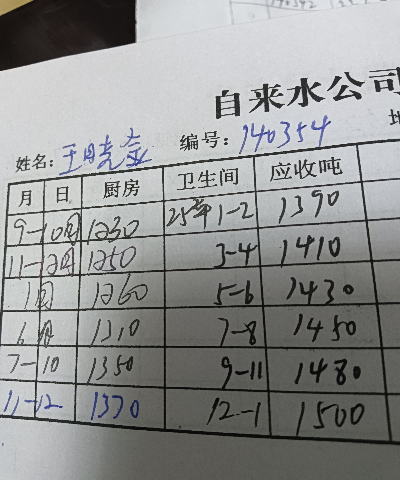 自来水公司
姓名: 王 编号: 140354
月 日 厨房 卫生间 应收吨
9-10月 1230 25年1-2 1390
11-12月 1250 3-4 1410
1月 1260 5-6 1430
6月 1310 7-8 1450
7-10 1350 9-11 1480
11-12 1370 12-1 1500